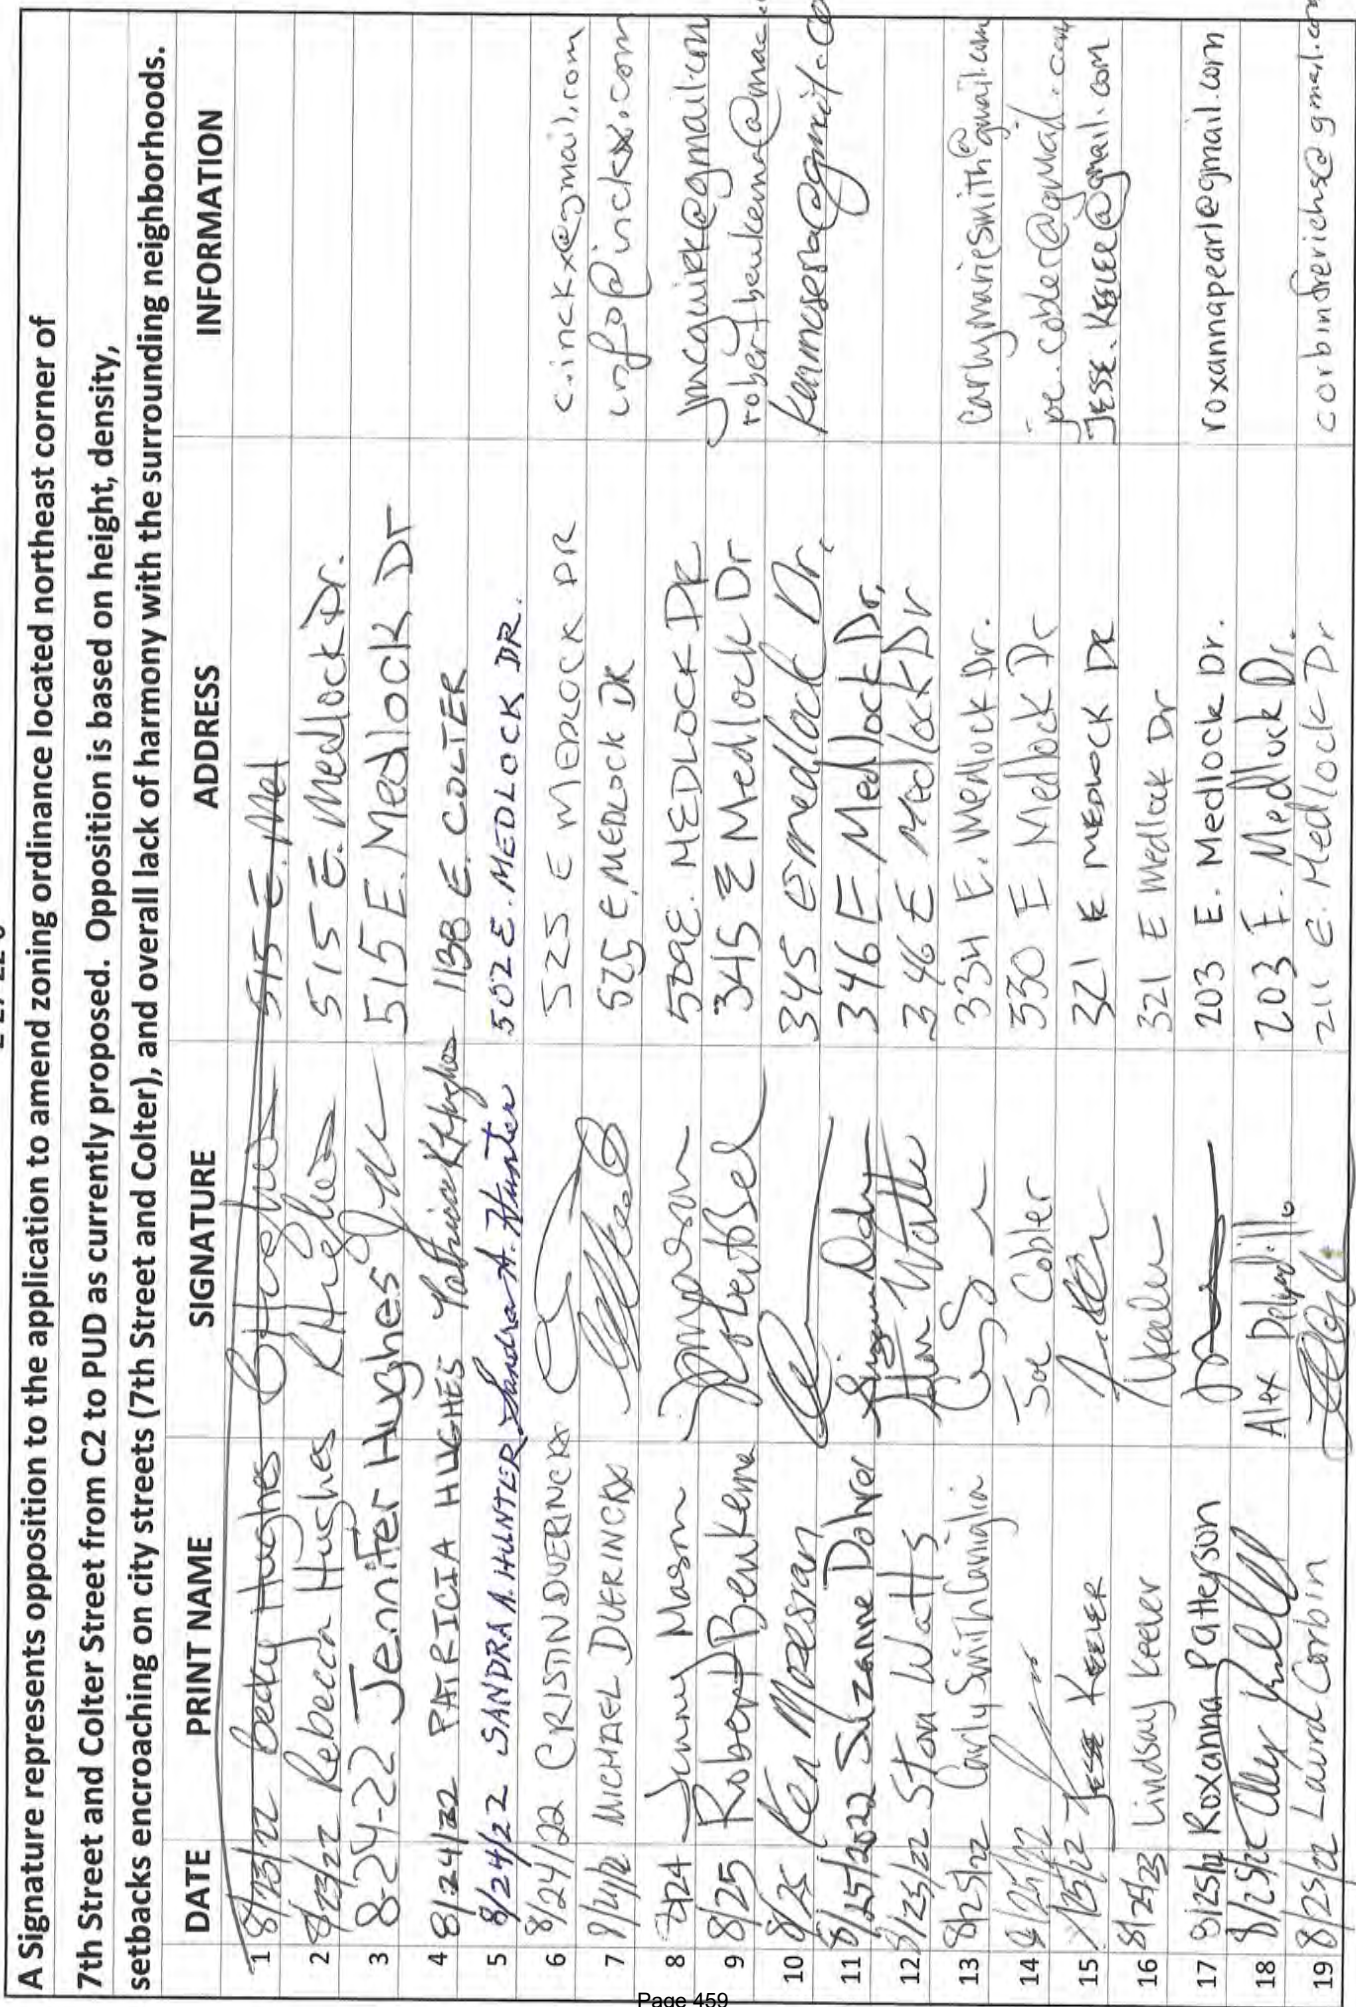 A Signature represents opposition to the application to amend zoning ordinance located northeast corner of
7th Street and Colter Street from C2 to PUD as currently proposed. Opposition is based on height, density,
setbacks encroaching on city streets (7th Street and Colter), and overall lack of harmony with the surrounding neighborhoods.
DATE PRINT NAME SIGNATURE ADDRESS INFORMATION
1 8/23/22 Becky Hughes BHughes 515 E. Mel
2 8/23/22 Rebecca Hughes RHughes 515 E. Medlock Dr.
3 8-24-22 Jennifer Hughes 515 E. Medlock Dr
4 8/24/22 PATRICIA HUGHES Patricia K Hughes 1138 E. COLTER
5 8/24/22 SANDRA A. HUNTER Sandra A. Hunter 502 E. MEDLOCK DR.
6 8/24/22 CRISTIN DUERINCKX 525 E MEDLOCK DR c.inckx@gmail.com
7 MICHAEL DUERINCKX 525 E. MEDLOCK DR info@inckx.com
8 8/24 Jenny Mason 509 E. MEDLOCK DR jmcquirk@gmail.com
9 8/25 Robert Beukema 345 E Medlock Dr robertbeukema@mac.
10 8/25 Ken Mpesran 345 E medlock Dr.
11 8/25/2022 Suzanne Dohrer 346 E. Medlock Dr.
12 8/25/22 Stan Watts Stan Watts 346 E Medlock Dr
13 8/25/22 Carly Smith Caniglia 334 E. Medlock Dr. carlymariesmith@gmail.com
14 8/25/22 Joe Cobler 330 E Medlock Dr joe.cobler@gmail.com
15 8/25/22 JESSE KEELER 321 E MEDLOCK DR JESSE.KEELER@gmail.com
16 8/25/23 Lindsay Keeler 321 E Medlock Dr
17 8/25/22 Roxanna Patterson 203 E. Medlock Dr. roxannapearl@gmail.com
18 8/25/22 Alex Delgadillo 203 E. Medlock Dr.
19 8/25/22 Laura Corbin 211 E. Medlock Dr corbinfrerichs@gmail.com
Page 459